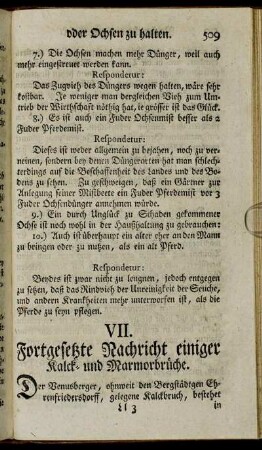 oder Ochsen zu halten. 509
7.) Die Ochsen machen mehr Dünger, weil auch
mehr eingestreuet werden kann.
Respondetur:
Das Zugvieh des Düngers wegen halten, wäre sehr
kostbar. Je weniger man dergleichen Vieh zum Um-
trieb der Wirthschaft nöthig hat, ie grösser ist das Glück.
8.) Es ist auch ein Fuder Ochsenmist besser als 2
Fuder Pferdemist.
Respondetur:
Dieses ist weder allgemein zu bejahen, noch zu ver-
neinen, sondern bey denen Düngerarten hat man schlech-
terdings auf die Beschaffenheit des Landes und des Bo-
dens zu sehen. Zu geschweigen, daß ein Gärtner zur
Anlegung seiner Mistbeete ein Fuder Pferdemist vor 3
Fuder Ochsendünger annehmen würde.
9.) Ein durch Unglück zu Schaden gekommener
Ochse ist noch wohl in der Haußhaltung zu gebrauchen:
10.) Auch ist überhaupt ein alter eher an den Mann
zu bringen oder zu nutzen, als ein alt Pferd.
Respondetur:
Beydes ist zwar nicht zu leugnen, jedoch entgegen
zu setzen, daß das Rindvieh der Unreinigkeit der Seuche,
und andern Kranckheiten mehr unterworfen ist, als die
Pferde zu seyn pflegen.
VII.
Fortgesetzte Nachricht einiger
Kalck- und Marmorbrüche.
Der Venusberger, ohnweit den Bergstädtgen Eh-
renfriedersdorff, gelegene Kalckbruch, bestehet
Ll 3 in